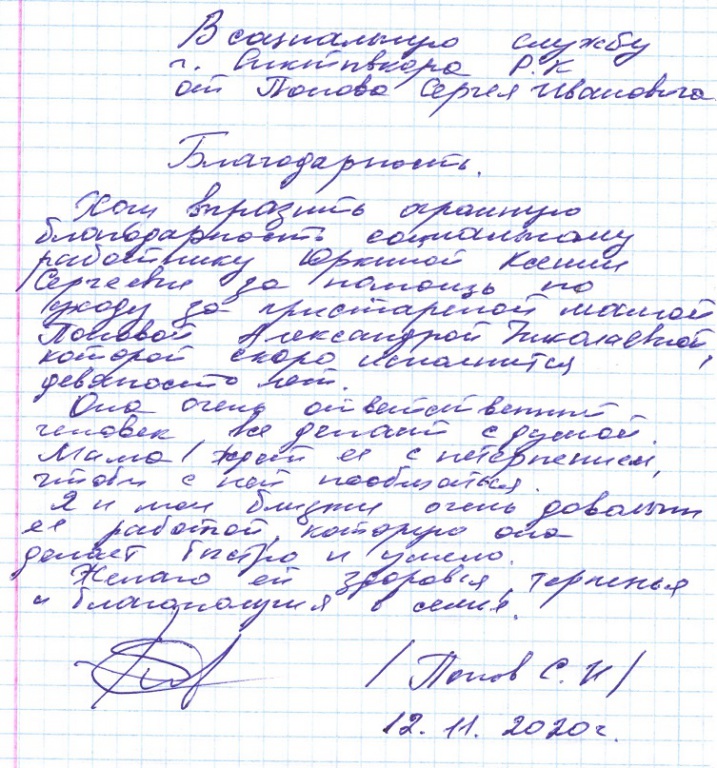 В социальную службу
г. Сыктывкара Р.К
от Попова Сергея Ивановича
Благодарность.
Хочу выразить огромную
благодарность социальному
работнику Юркиной Ксении
Сергеевне за помощь по
уходу за престарелой мамой
Поповой Александрой Николаевной,
которой скоро исполнится
девяносто лет.
Она очень ответственный
человек все делает с душой.
Мама ждет ее с нетерпением,
чтобы с ней пообщаться.
Я и мои близкие очень довольны
ее работой, которую она
делает быстро и умело.
Желаю ей здоровья, терпенья
и благополучия в семье.
/Попов С. И/
12. 11. 2020г.